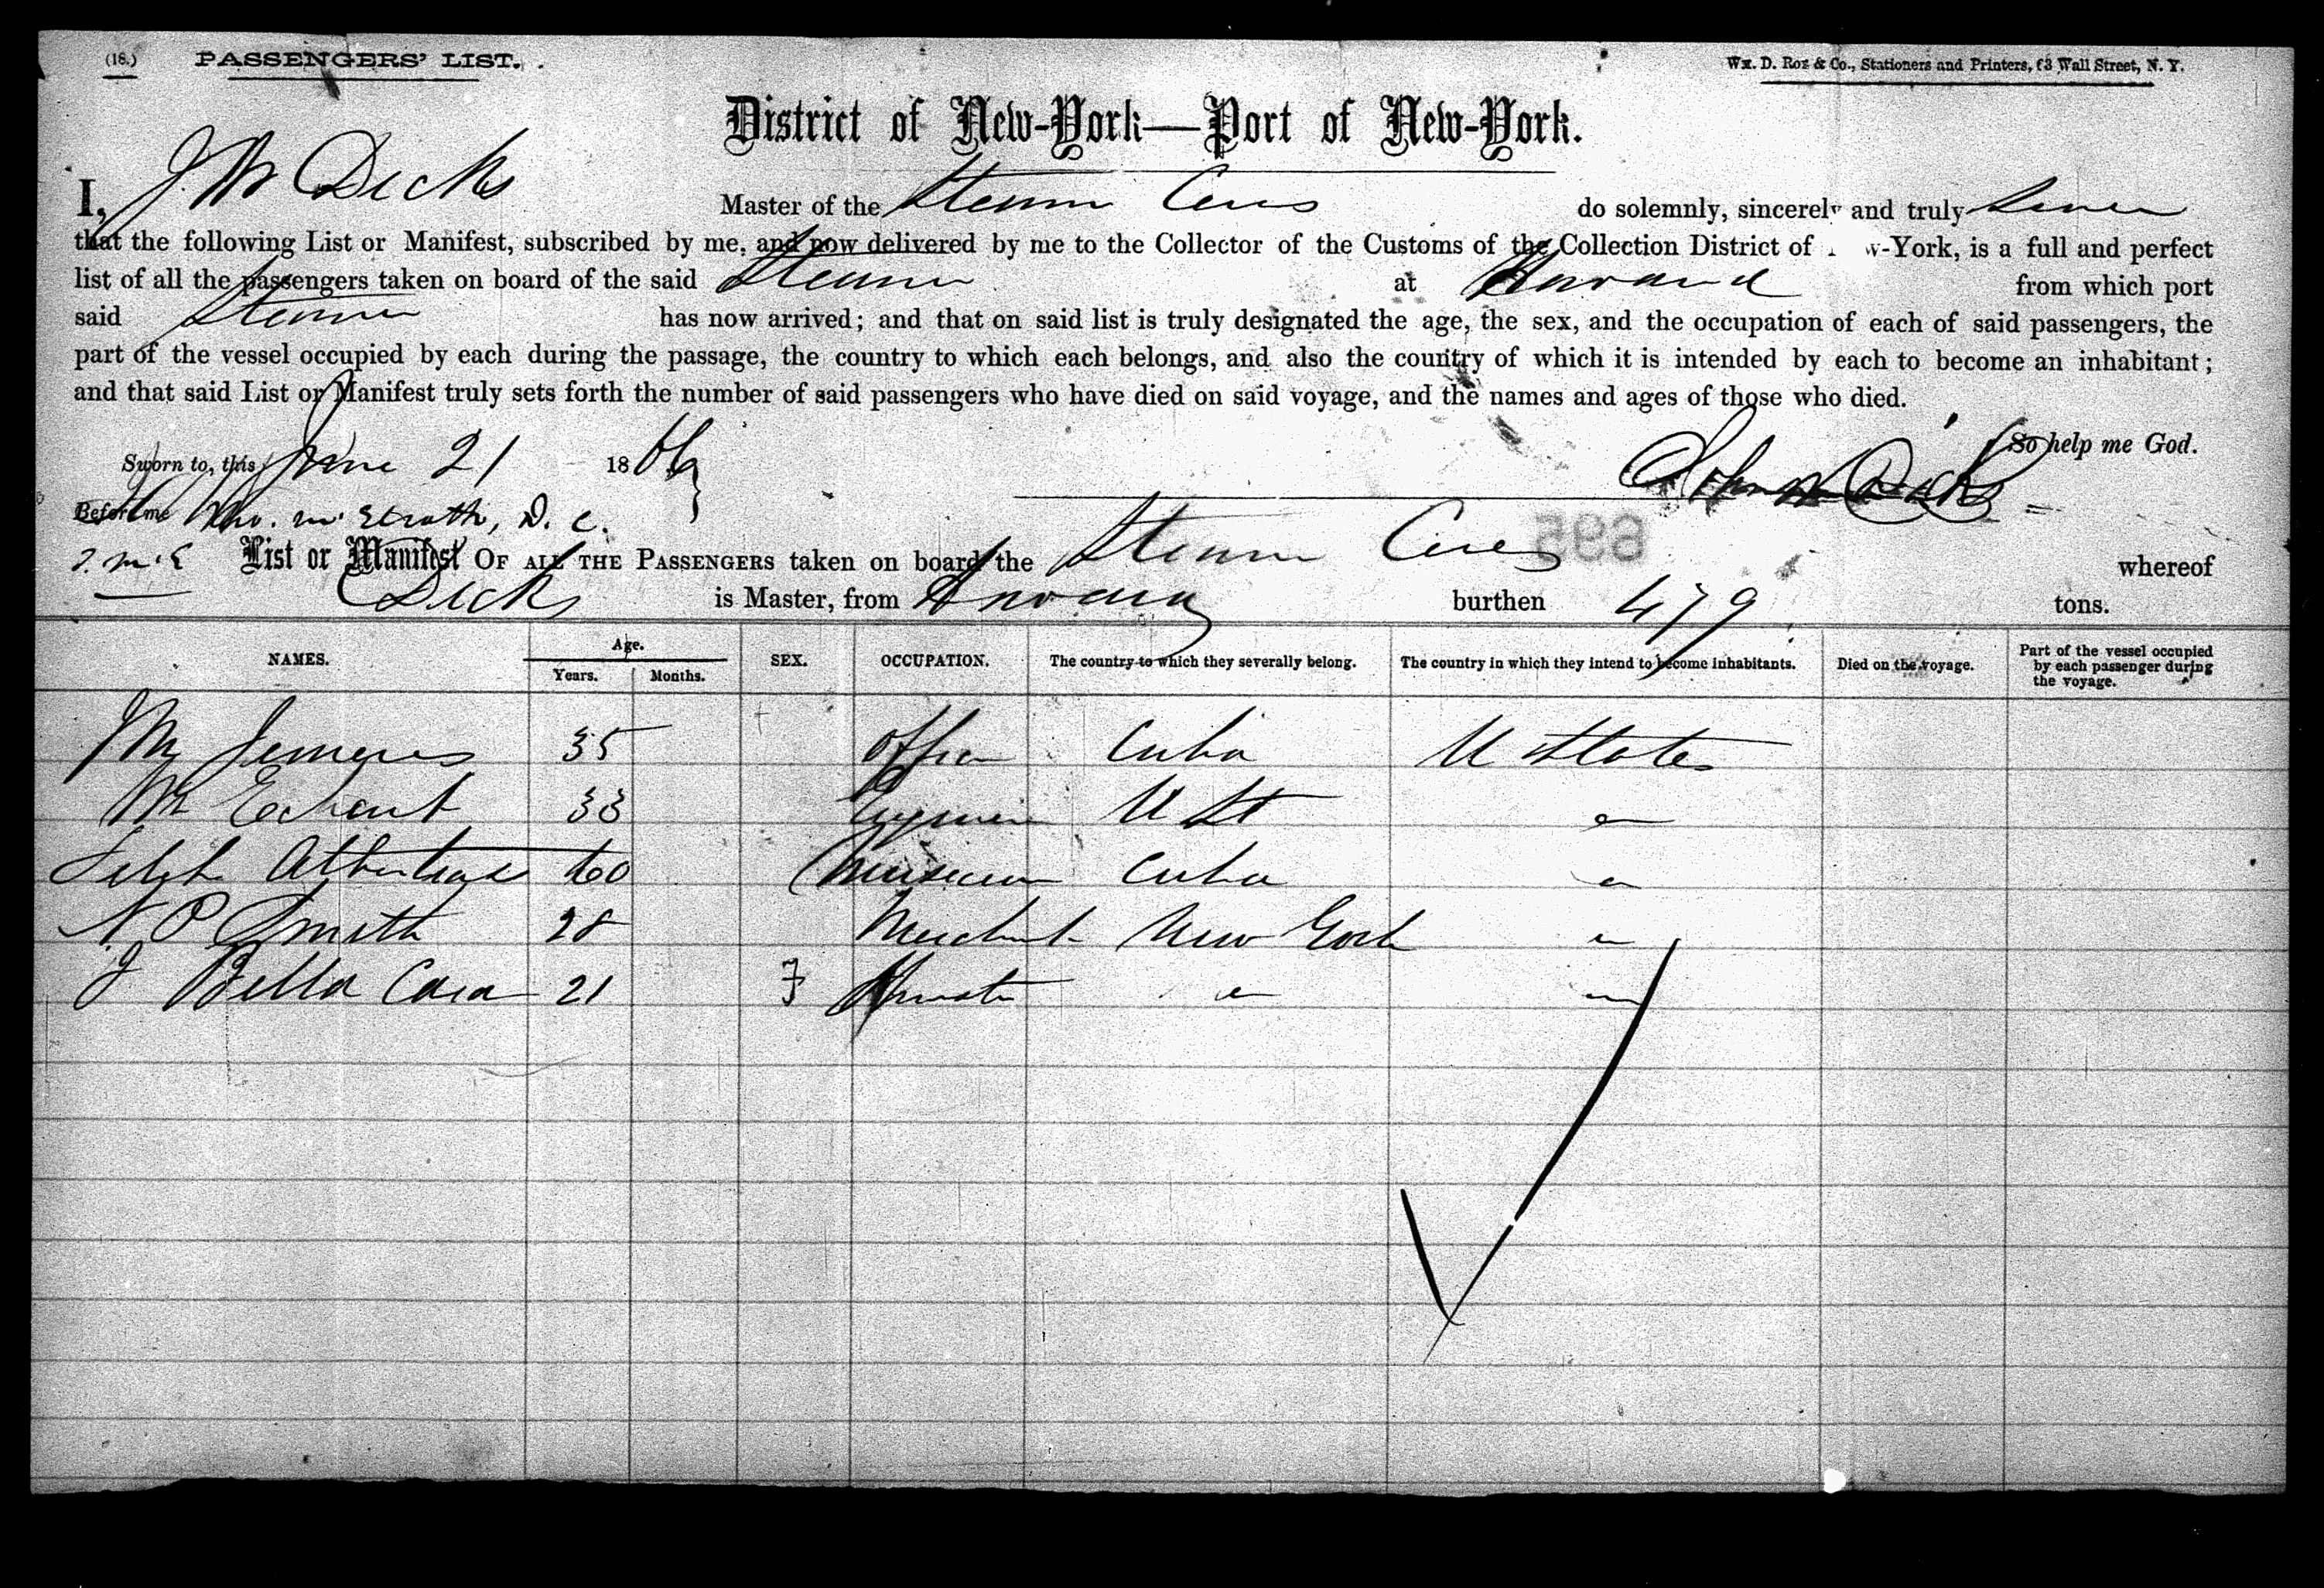 (18.) PASSENGERS' LIST.
Wm. D. Roe & Co., Stationers and Printers, 63 Wall Street, N. Y.
District of New-York—Port of New-York.
I, J. W Dicks Master of the Steamer Ceres do solemnly, sincerely and truly swear
that the following List or Manifest, subscribed by me, and now delivered by me to the Collector of the Customs of the Collection District of w-York, is a full and perfect
list of all the passengers taken on board of the said Steamer at Havana from which port
said Steamer has now arrived; and that on said list is truly designated the age, the sex, and the occupation of each of said passengers, the
part of the vessel occupied by each during the passage, the country to which each belongs, and also the country of which it is intended by each to become an inhabitant;
and that said List or Manifest truly sets forth the number of said passengers who have died on said voyage, and the names and ages of those who died.
So help me God.
Sworn to, this June 21 1866
John W Dicks
Before me Tho. McElrath, D. C.
T. McE List or Manifest OF ALL THE PASSENGERS taken on board the Steamer Ceres whereof
Dicks is Master, from Havana burthen 479 tons.
695
NAMES. Age. Years. Months. SEX. OCCUPATION. The country to which they severally belong. The country in which they intend to become inhabitants. Died on the voyage. Part of the vessel occupied by each passenger during the voyage.
Mr 35 Cuba U States
Mr Echart 33 U St "
60 Musician Cuba "
N. P Smith 28 Merchant New York "
J Bella Casa 21 F Private " "